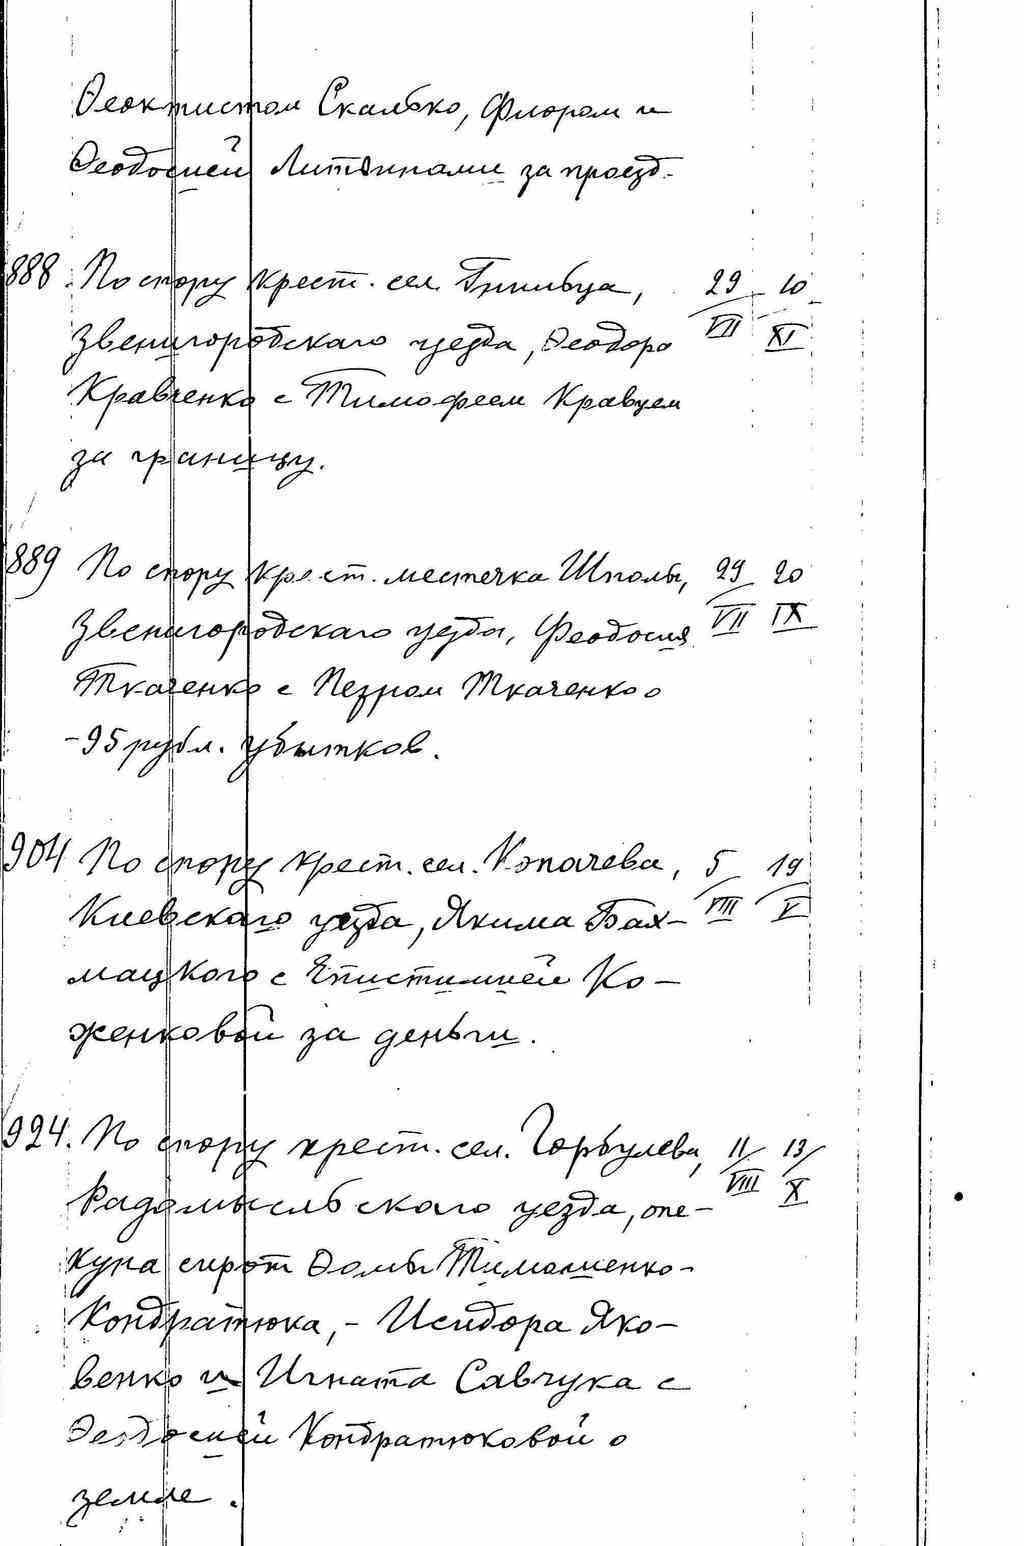 Феоктистом Скалько, Флором и
Феодосией Литвинами за проезд.
888. По спору крест. сел. Гнильца, 29/VII 10/XI
Звенигородскаго уезда, Феодора
Кравченко с Тимофеем Кравцем
за границу.
889 По спору крест. местечка Шполы, 29/VII 20/IX
Звенигородскаго уезда, Феодосия
Ткаченко с Петром Ткаченко о
-95 рубл. убытков.
904 По спору крест. сел. Копачева, 5/VIII 19/V
Киевскаго уезда, Якима Бах-
мацкого с Епистимией Ко-
женковой за деньги.
924. По спору крест. сел. Горбулева, 11/VIII 13/X
Радомысльскаго уезда, опе-
куна сирот Фомы Тимошенко-
Кондратюка, - Исидора Яко-
венко и Игната Савчука с
Феодосией Кондратюковой о
земле.